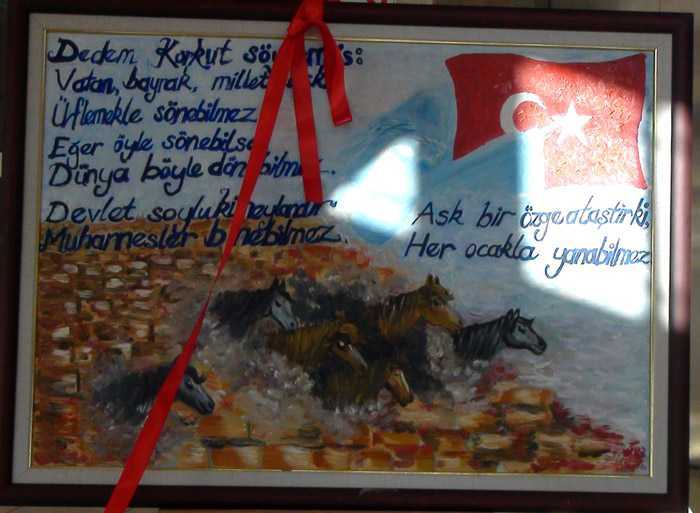 Dedem Korkut
Vatan, bayrak, millet
Üflemekle sönebilmez
Eğer öyle sönebilse
Dünya böyle dönebilmez.
Devlet soylu
Muhannesler binebilmez.
Ask bir özge ataştirki,
Her ocakla yanabilmez